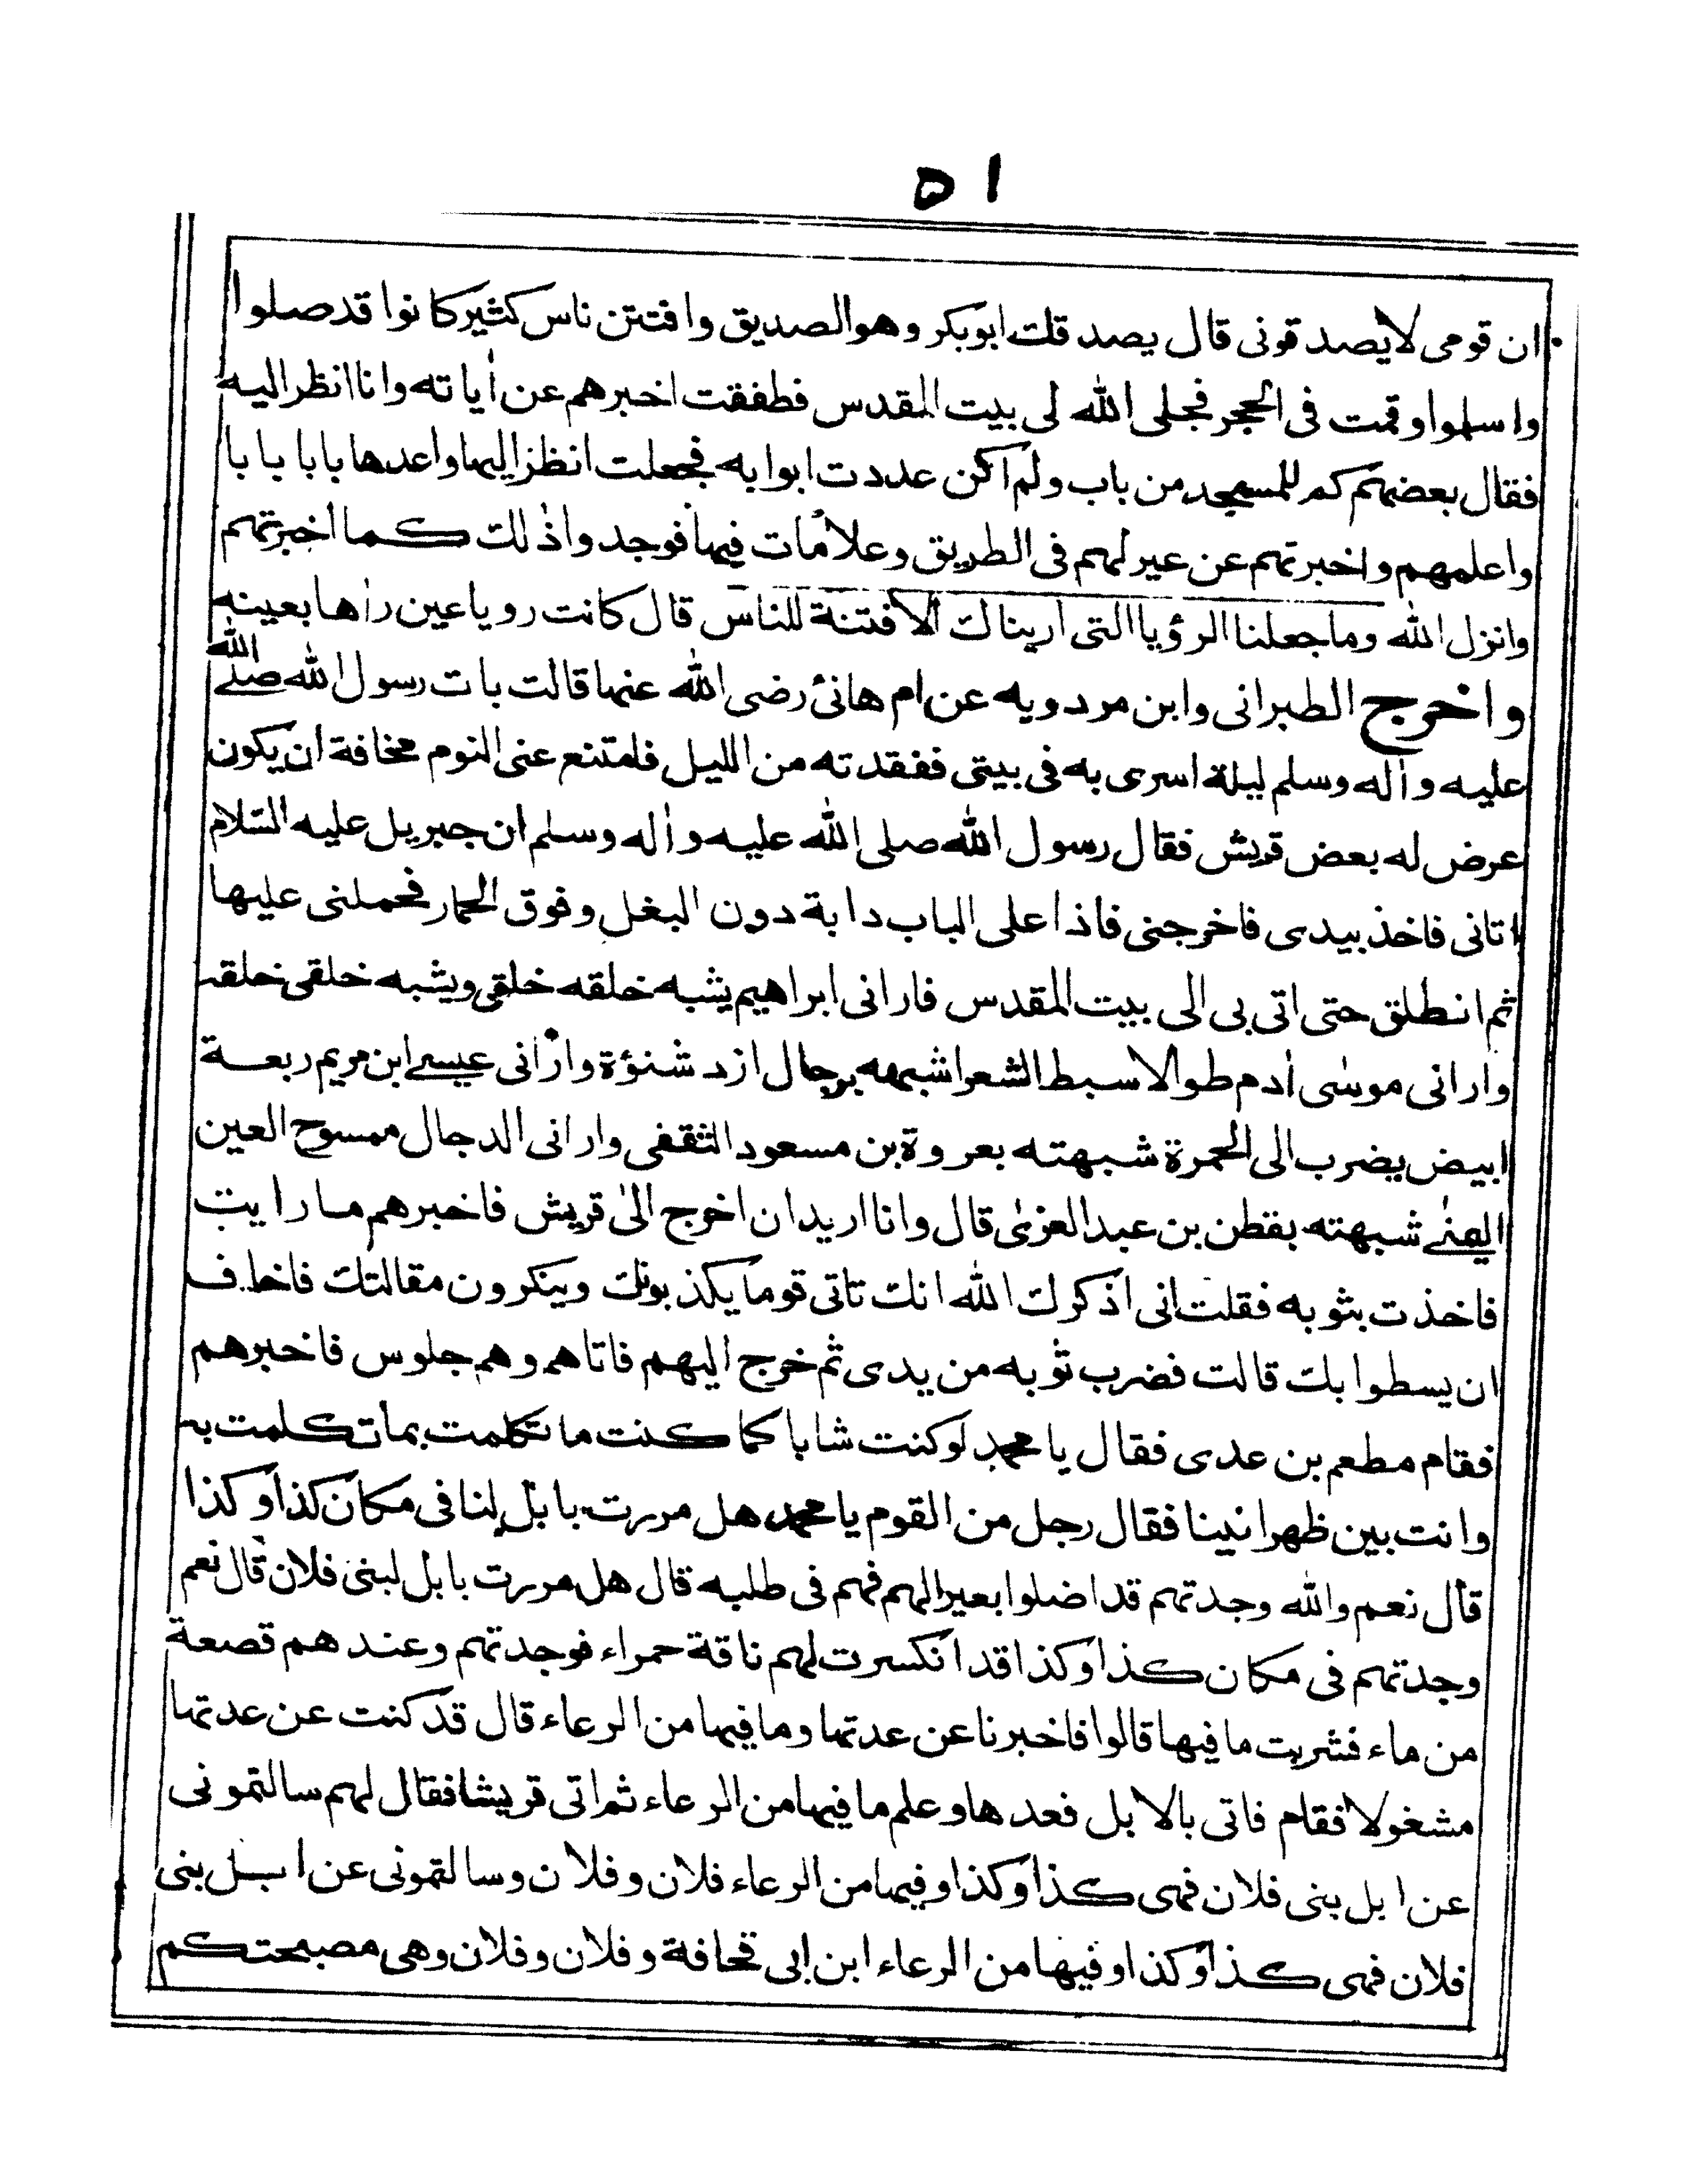 ٥١
ان قومى لا يصدقونى قال يصدقك ابوبكر وهو الصديق وافتتن ناس كثير كانوا قد صلوا
واسلموا وقمت فى الحجر فجلى الله لى بيت المقدس فطفقت اخبرهم عن اٰياته وانا انظر اليه
فقال بعضهم كم للمسجد من باب ولم اكن عددت ابوابه فجعلت انظر اليها واعدها بابا بابا
واعلمهم واخبرتهم عن عير لهم فى الطريق وعلامات فيها فوجدوا ذٰلك كما اخبرتهم
وانزل الله وما جعلنا الرؤيا التى اريناك الا فتنة للناس قال كانت رويا عين راٰها بعينه
واخرج الطبرانى وابن مردويه عن ام هانئ رضى الله عنها قالت بات رسول الله صلے الله
عليه واٰله وسلم ليلة اسرى به فى بيتى ففقدته من الليل فامتنع عنى النوم مخافة ان يكون
عرض له بعض قريش فقال رسول الله صلى الله عليه واٰله وسلم ان جبريل عليه السّلام
اتانى فاخذ بيدى فاخرجنى فاذا على الباب دابة دون البغل وفوق الحمار فحملنى عليها
ثم انطلق حتى اتى بى الى بيت المقدس فارانى ابراهيم يشبه خلقه خلقى ويشبه خلقى خلقه
وارانى موسٰى اٰدم طوالا سبط الشعر اشبهه برجال ازد شنؤة وارانى عيسے ابن مريم ربعة
ابيض يضرب الى الحمرة شبهته بعروة بن مسعود الثقفى وارانى الدجال ممسوح العين
اليمنٰے شبهته بقطن بن عبد العزىٰ قال وانا اريد ان اخرج الىٰ قريش فاخبرهم ما رايت
فاخذت بثوبه فقلت انى اذكرك الله انك تاتى قوما يكذبونك وينكرون مقالتك فاخاف
ان يسطوا بك قالت فضرب ثوبه من يدى ثم خرج اليهم فاتاهم وهم جلوس فاخبرهم
فقام مطعم بن عدى فقال يا محمد لو كنت شابا كما كنت ما تكلمت بما تكلمت به
وانت بين ظهرانينا فقال رجل من القوم يا محمد هل مررت بابل لنا فى مكان كذا وكذا
قال نعم والله وجدتهم قد اضلوا بعيرا لهم فهم فى طلبه قال هل مررت بابل لبنى فلان قال نعم
وجدتهم فى مكان كذا وكذا قد انكسرت لهم ناقة حمراء فوجدتهم وعندهم قصعة
من ماء فشربت ما فيها قالوا فاخبرنا عن عدتها وما فيها من الرعاء قال قد كنت عن عدتها
مشغولا فقام فاتى بالابل فعدها وعلم ما فيها من الرعاء ثم اتى قريشا فقال لهم سالتمونى
عن ابل بنى فلان فهى كذا وكذا وفيها من الرعاء فلان وفلان وسالتمونى عن ابل بنى
فلان فهى كذا وكذا وفيها من الرعاء ابن ابى قحافة وفلان وفلان وهى مصبحتكم